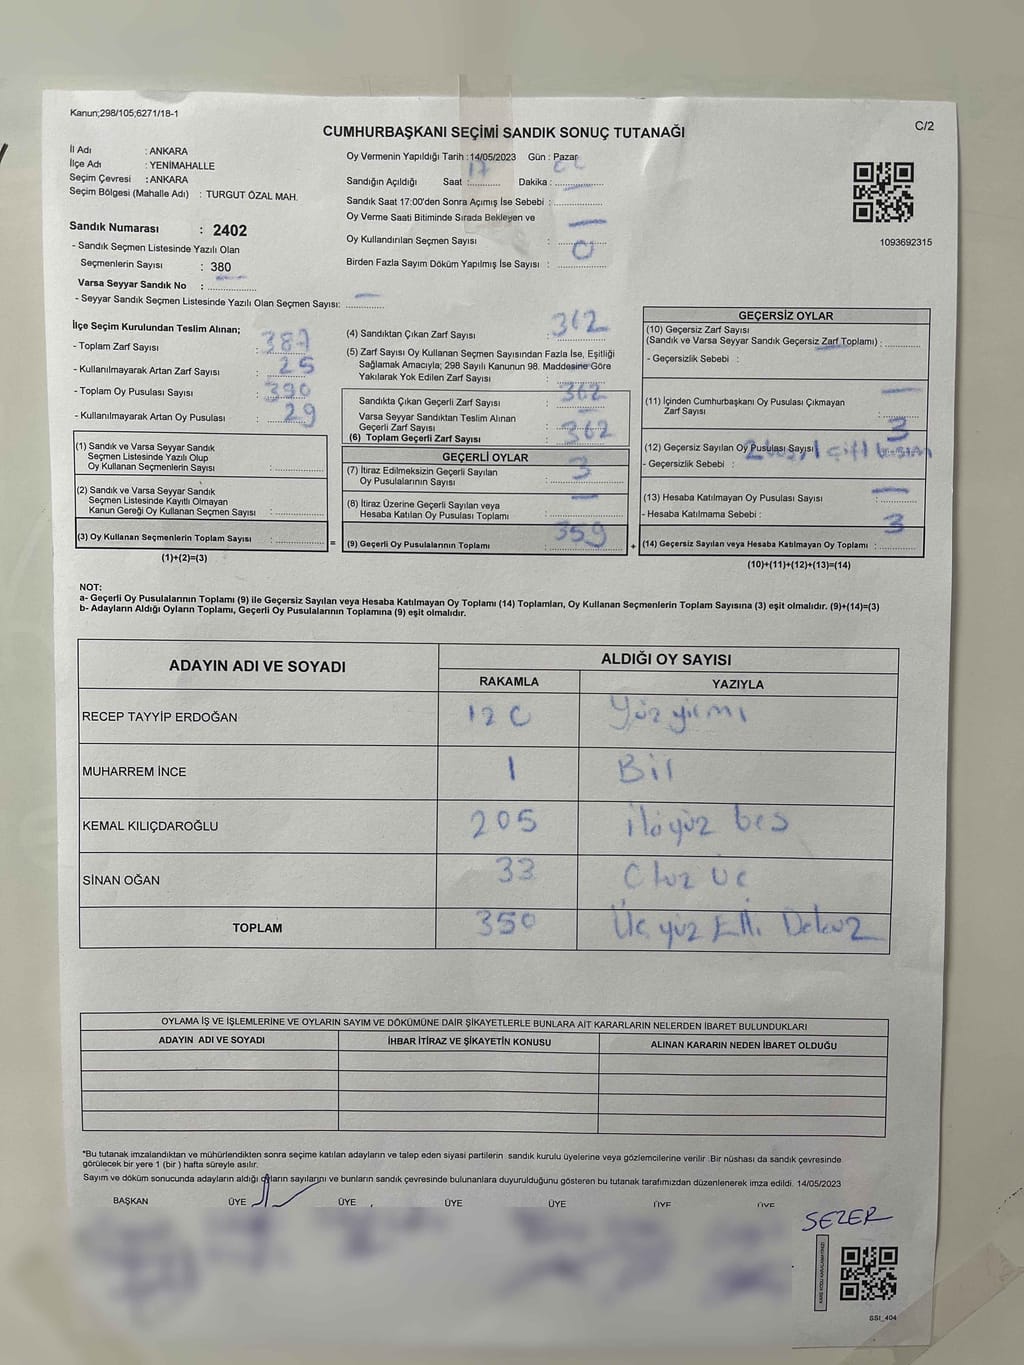 Kanun;298/105;6271/18-1
C/2
CUMHURBAŞKANI SEÇİMİ SANDIK SONUÇ TUTANAĞI
İl Adı : ANKARA
İlçe Adı : YENİMAHALLE
Seçim Çevresi : ANKARA
Seçim Bölgesi (Mahalle Adı) : TURGUT ÖZAL MAH.
Oy Vermenin Yapıldığı Tarih :14/05/2023 Gün : Pazar
Sandığın Açıldığı Saat : 17 Dakika :
Sandık Saat 17:00'den Sonra Açımış İse Sebebi :
Oy Verme Saati Bitiminde Sırada Bekleyen ve
Oy Kullandırılan Seçmen Sayısı : —
Birden Fazla Sayım Döküm Yapılmış İse Sayısı : 0
1093692315
Sandık Numarası : 2402
- Sandık Seçmen Listesinde Yazılı Olan
Seçmenlerin Sayısı : 380
Varsa Seyyar Sandık No : —
- Seyyar Sandık Seçmen Listesinde Yazılı Olan Seçmen Sayısı: —
İlçe Seçim Kurulundan Teslim Alınan;
- Toplam Zarf Sayısı : 387
- Kullanılmayarak Artan Zarf Sayısı : 25
- Toplam Oy Pusulası Sayısı : 390
- Kullanılmayarak Artan Oy Pusulası : 29
(1) Sandık ve Varsa Seyyar Sandık
Seçmen Listesinde Yazılı Olup
Oy Kullanan Seçmenlerin Sayısı :
(2) Sandık ve Varsa Seyyar Sandık
Seçmen Listesinde Kayıtlı Olmayan
Kanun Gereği Oy Kullanan Seçmen Sayısı :
(3) Oy Kullanan Seçmenlerin Toplam Sayısı :
(1)+(2)=(3)
=
(4) Sandıktan Çıkan Zarf Sayısı : 362
(5) Zarf Sayısı Oy Kullanan Seçmen Sayısından Fazla İse, Eşitliği
Sağlamak Amacıyla; 298 Sayılı Kanunun 98. Maddesine Göre
Yakılarak Yok Edilen Zarf Sayısı :
Sandıkta Çıkan Geçerli Zarf Sayısı : 362
Varsa Seyyar Sandıktan Teslim Alınan
Geçerli Zarf Sayısı : —
(6) Toplam Geçerli Zarf Sayısı : 362
GEÇERLİ OYLAR
(7) İtiraz Edilmeksizin Geçerli Sayılan
Oy Pusulalarının Sayısı : 3
(8) İtiraz Üzerine Geçerli Sayılan veya
Hesaba Katılan Oy Pusulası Toplamı : —
(9) Geçerli Oy Pusulalarının Toplamı : 359
+
GEÇERSİZ OYLAR
(10) Geçersiz Zarf Sayısı
(Sandık ve Varsa Seyyar Sandık Geçersiz Zarf Toplamı) :
- Geçersizlik Sebebi :
(11) İçinden Cumhurbaşkanı Oy Pusulası Çıkmayan
Zarf Sayısı : —
(12) Geçersiz Sayılan Oy Pusulası Sayısı : 3
- Geçersizlik Sebebi : çift basım
(13) Hesaba Katılmayan Oy Pusulası Sayısı : —
- Hesaba Katılmama Sebebi :
(14) Geçersiz Sayılan veya Hesaba Katılmayan Oy Toplamı : 3
(10)+(11)+(12)+(13)=(14)
NOT:
a- Geçerli Oy Pusulalarının Toplamı (9) ile Geçersiz Sayılan veya Hesaba Katılmayan Oy Toplamı (14) Toplamları, Oy Kullanan Seçmenlerin Toplam Sayısına (3) eşit olmalıdır. (9)+(14)=(3)
b- Adayların Aldığı Oyların Toplamı, Geçerli Oy Pusulalarının Toplamına (9) eşit olmalıdır.
ADAYIN ADI VE SOYADI
ALDIĞI OY SAYISI
RAKAMLA YAZIYLA
RECEP TAYYİP ERDOĞAN 120 Yüz yirmi
MUHARREM İNCE 1 Bir
KEMAL KILIÇDAROĞLU 205 ikiyüz beş
SİNAN OĞAN 33 Otuz Üç
TOPLAM 359 Üç yüz Elli Dokuz
OYLAMA İŞ VE İŞLEMLERİNE VE OYLARIN SAYIM VE DÖKÜMÜNE DAİR ŞİKAYETLERLE BUNLARA AİT KARARLARIN NELERDEN İBARET BULUNDUKLARI
ADAYIN ADI VE SOYADI İHBAR İTİRAZ VE ŞİKAYETİN KONUSU ALINAN KARARIN NEDEN İBARET OLDUĞU
*Bu tutanak imzalandıktan ve mühürlendikten sonra seçime katılan adayların ve talep eden siyasi partilerin sandık kurulu üyelerine veya gözlemcilerine verilir .Bir nüshası da sandık çevresinde
görülecek bir yere 1 (bir ) hafta süreyle asılır.
Sayım ve döküm sonucunda adayların aldığı oyların sayılarını ve bunların sandık çevresinde bulunanlara duyurulduğunu gösteren bu tutanak tarafımızdan düzenlenerek imza edildi. 14/05/2023
BAŞKAN ÜYE ÜYE ÜYE ÜYE ÜYE ÜYE
SEZER
SSI_404